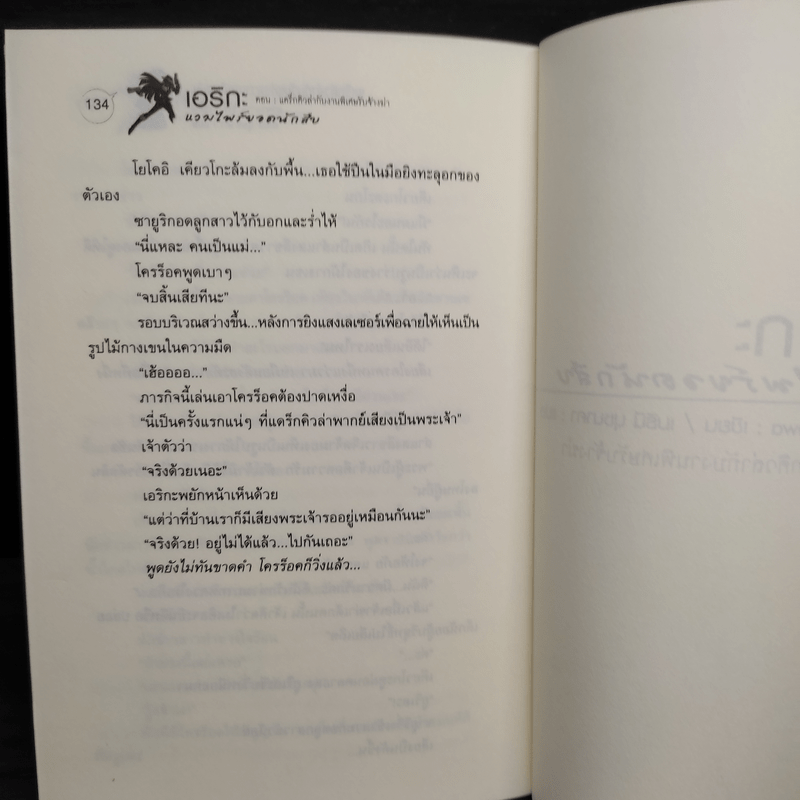 134
เอริกะ ตอน : แดร็กคิวล่ากับงานพิเศษรับจ้างฆ่า
แวมไพร์ยอดนักสืบ
โยโคอิ เคียวโกะล้มลงกับพื้น...เธอใช้ปืนในมือยิงทะลุอกของ
ตัวเอง
ซายูริกอดลูกสาวไว้กับอกและร่ำไห้
“นี่แหละ คนเป็นแม่...”
โครร็อคพูดเบาๆ
“จบสิ้นเสียทีนะ”
รอบบริเวณสว่างขึ้น...หลังการยิงแสงเลเซอร์เพื่อฉายให้เห็นเป็น
รูปไม้กางเขนในความมืด
“เฮ้ออออ...”
ภารกิจนี้เล่นเอาโครร็อคต้องปาดเหงื่อ
“นี่เป็นครั้งแรกแน่ๆ ที่แดร็กคิวล่าพากย์เสียงเป็นพระเจ้า”
เจ้าตัวว่า
“จริงด้วยเนอะ”
เอริกะพยักหน้าเห็นด้วย
“แต่ว่าที่บ้านเราก็มีเสียงพระเจ้ารออยู่เหมือนกันนะ”
“จริงด้วย! อยู่ไม่ได้แล้ว...ไปกันเถอะ”
พูดยังไม่ทันขาดคำ โครร็อคก็วิ่งแล้ว...